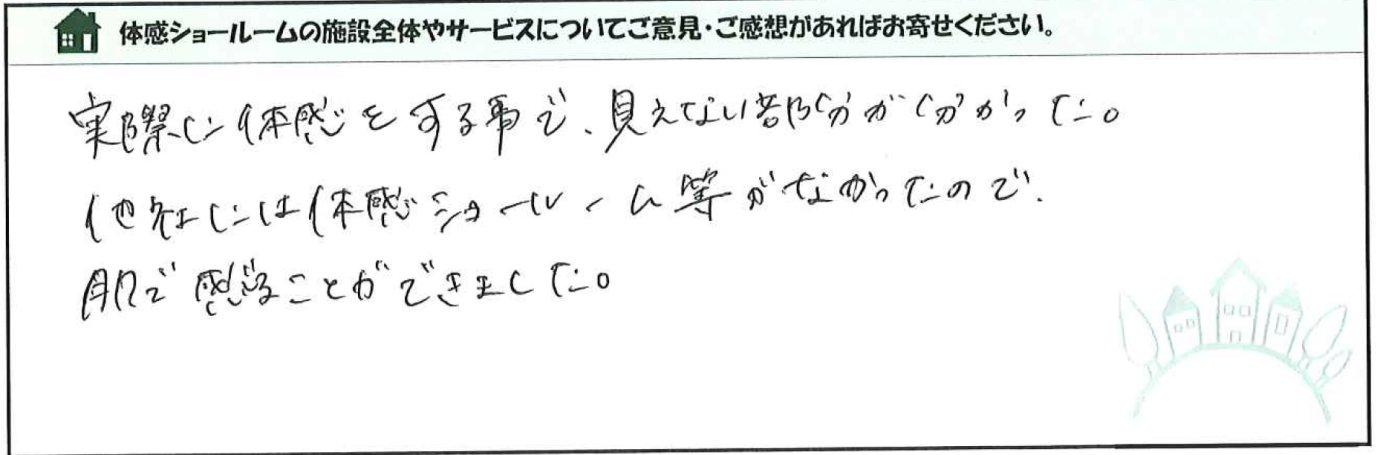 体感ショールームの施設全体やサービスについてご意見・ご感想があればお寄せください。
実際に体感をする事で、見えない部分が分かった。
他社には体感ショールーム等がなかったので、
肌で感じることができました。